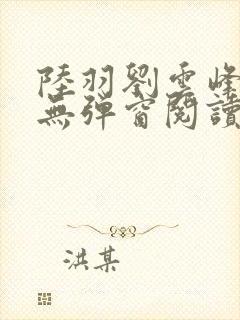 陸羽劉雲峰
無彈窗閱讀
洪某